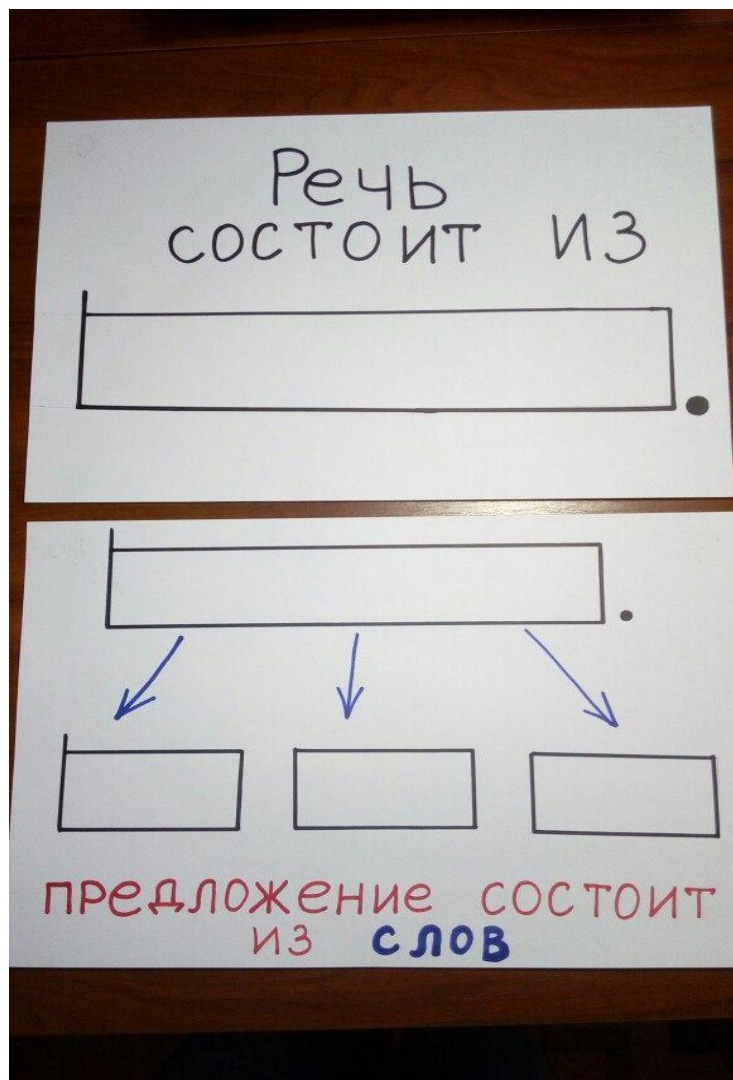 Речь
состоит из
предложение состоит
из слов